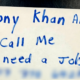 ony Khan A
Call Me
need a Job